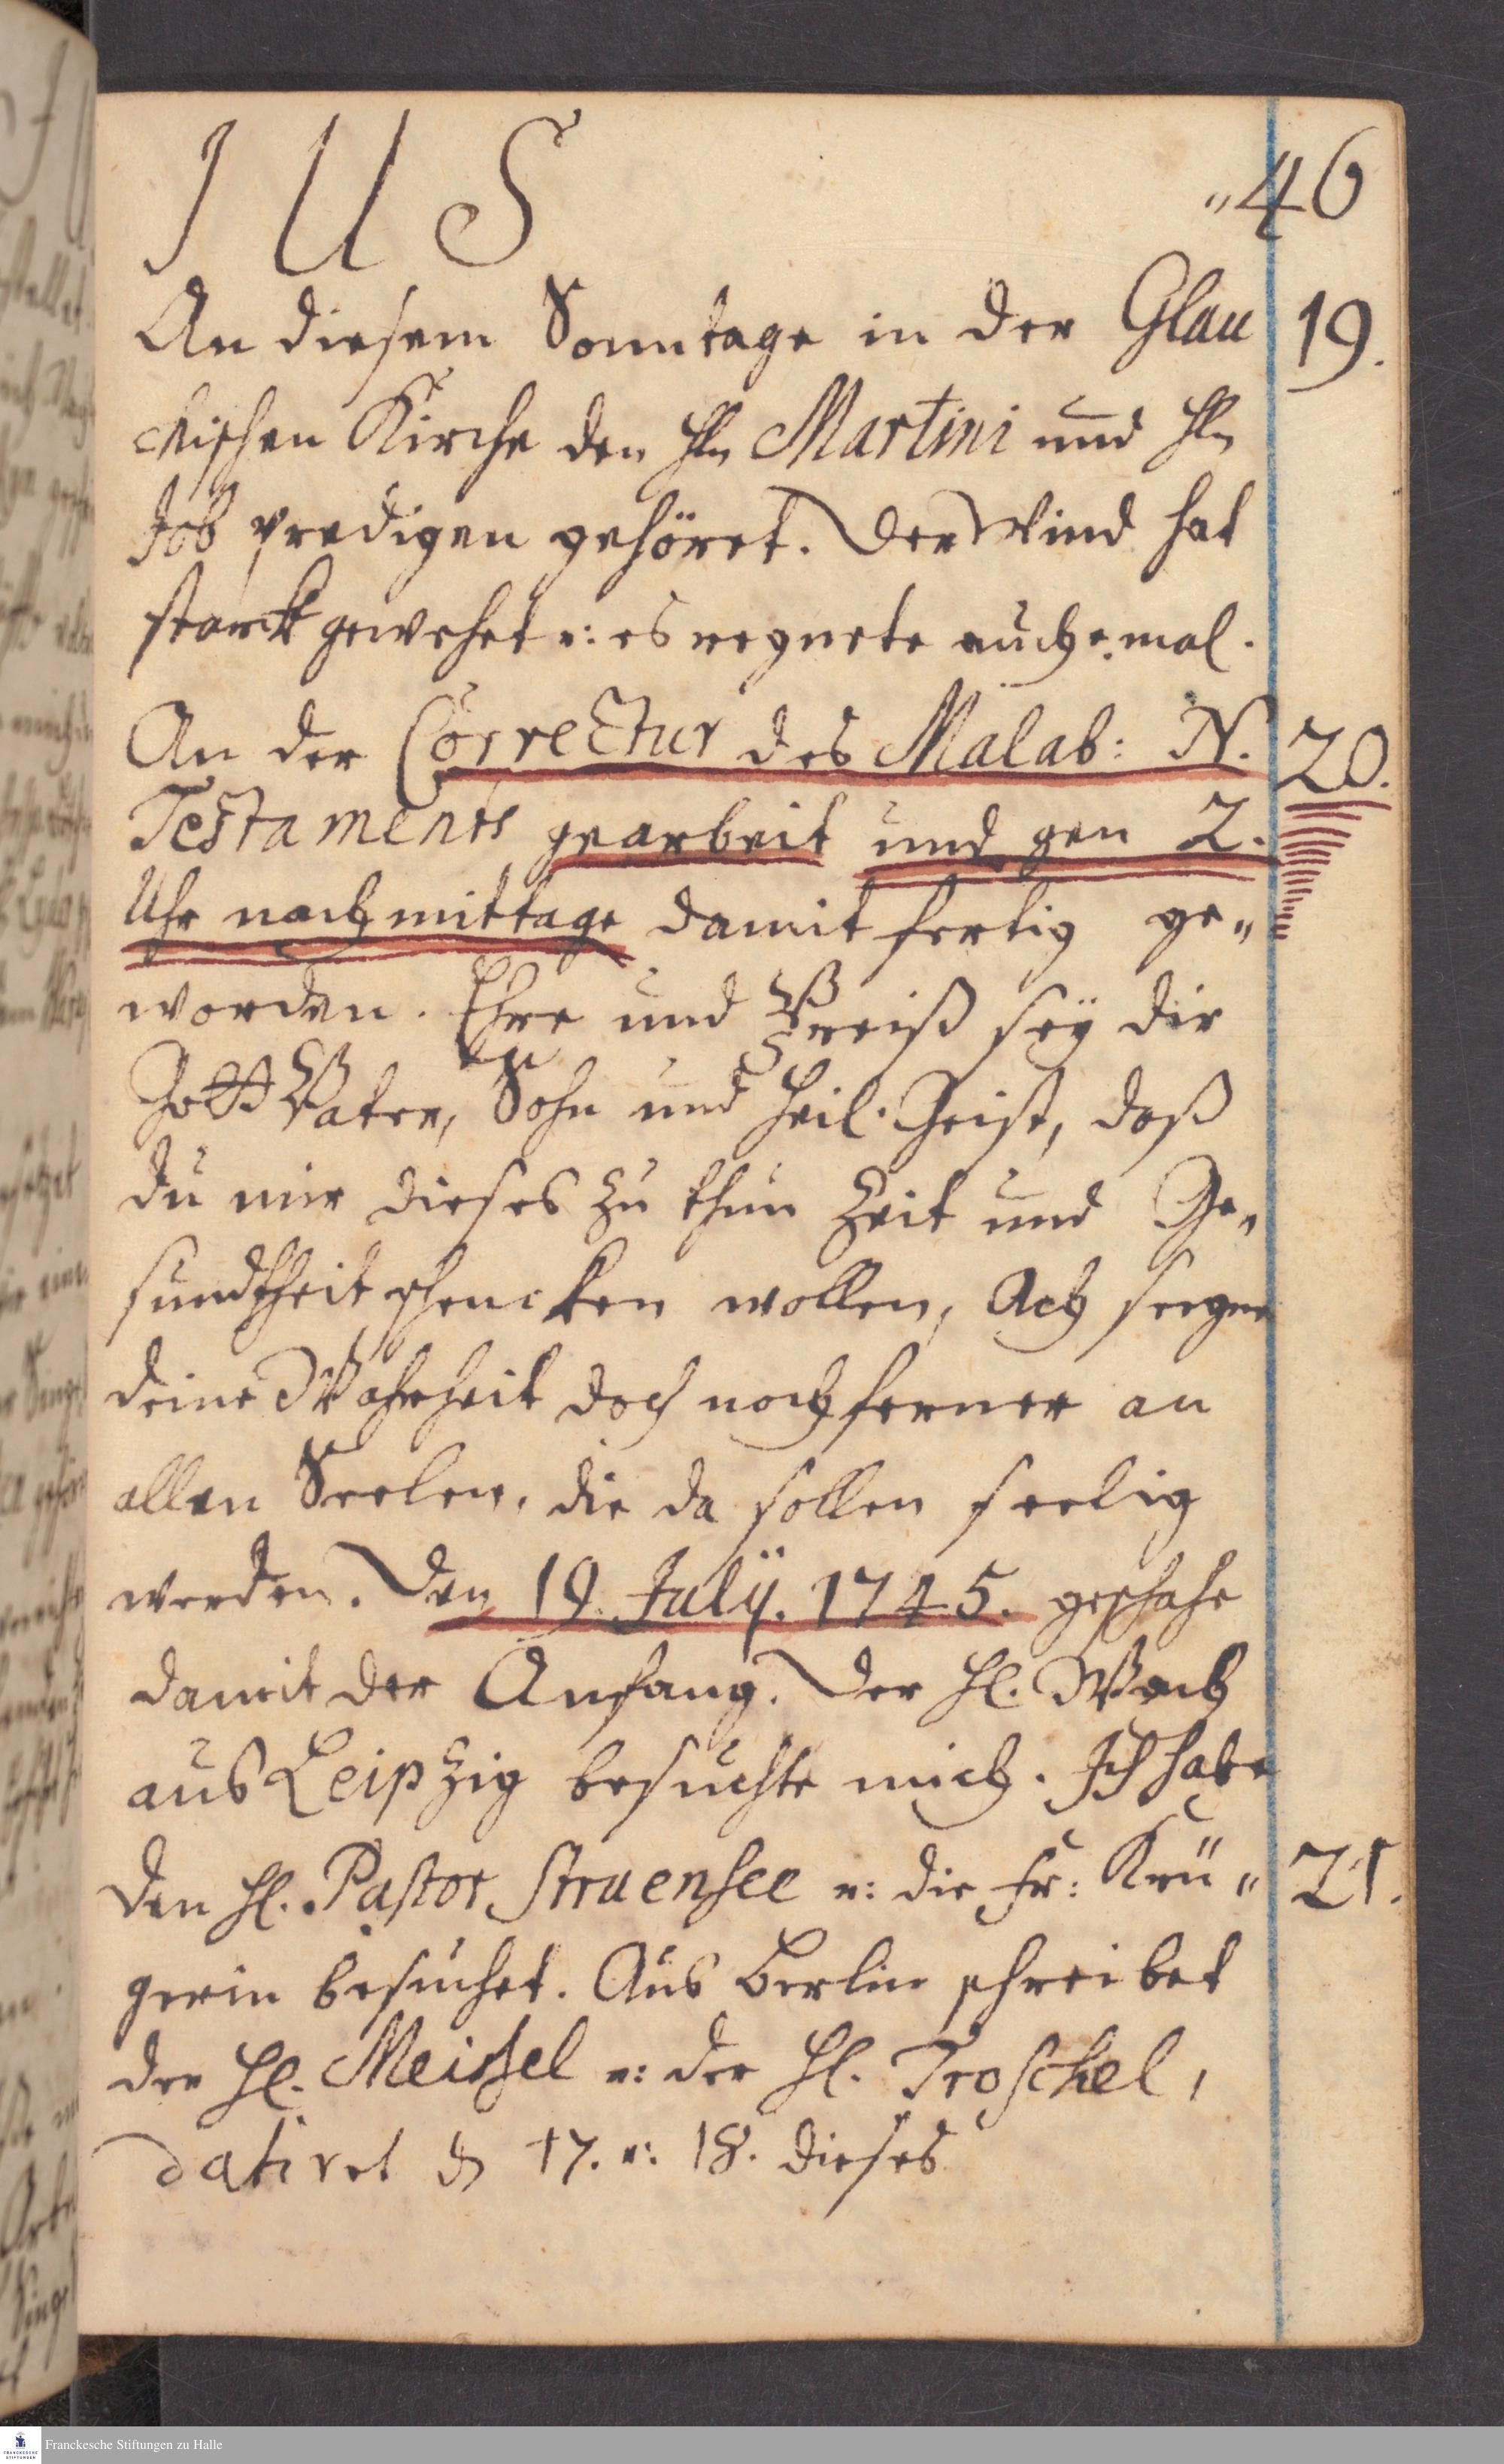 I U S „46
An diesem Sonntage in der Glau 19.
chischen Kirche den Hln Martini und Hln
Job predigen gehöret. Der Wind hat
starck gewehet u: es regnete auch e. mal.
An der Correctur des Malab: N. 20.
Testaments gearbeit und gen 2.
Uhr nachmittage damit fertig ge„
worden. Ehre und Preiß seÿ dir
Gott Vater, Sohn und Heil. Geist, daß
du mir dieses zu thun Zeit und Ge„
sundtheit schencken wollen, Ach seegne
deine Wahrheit doch noch ferner an
allen Seelen, die da sollen seelig
werden. Den 19. Julÿ. 1745. geschahe
damit der Anfang. Der Hl. Weech
aus Leipzig besuchte mich. Ich habe
den Hl. Pastor Struensee u: die Fr: Krü„ 21.
gerin besuchet. Aus Berlin schreibet
der Hl. Meissel u: der Hl. Troschel,
datiret d 17. u: 18. dieses
Franckesche Stiftungen zu Halle